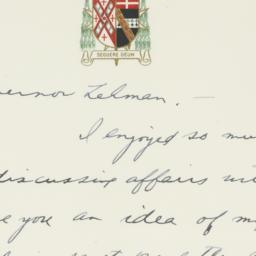 SEQUERE DEUM
vernor Lehman. —
I enjoyed so mu
discussing affairs wi
e you an idea of my